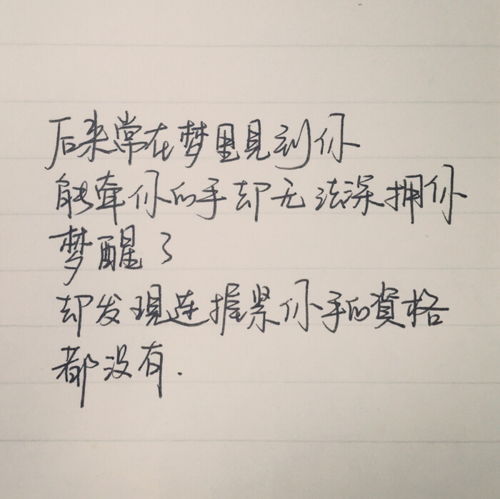 后来常在梦里見到你
能牽你的手却无法深拥你
梦醒了
却发現连握紧你手的資格
都没有.